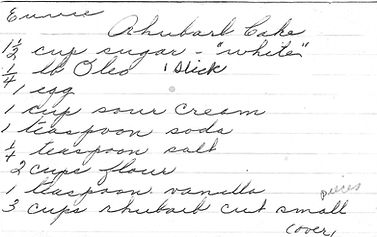 Eunice
Rhubarb Cake
1 1/2 cup sugar - "white"
1/4 lb Oleo 1 stick
1 egg
1 cup sour cream
1 teaspoon soda
1/4 teaspoon salt
2 cups flour
1 teaspoon vanilla
3 cups rhubarb cut small pieces
(over)